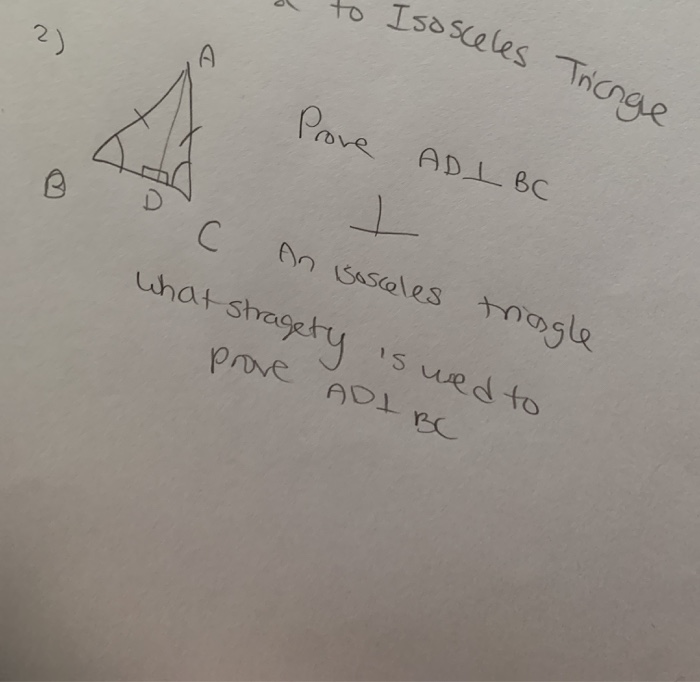 to Isosceles Triangle
2)
A
B
D
C
Prove AD⊥BC
⊥
An isosceles triangle
what stragety is used to
prove AD⊥BC